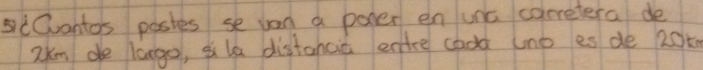 5) ¿Cuantos postes se van a poner en una carretera de
2km de largo, si la distancia entre cada uno es de 20km